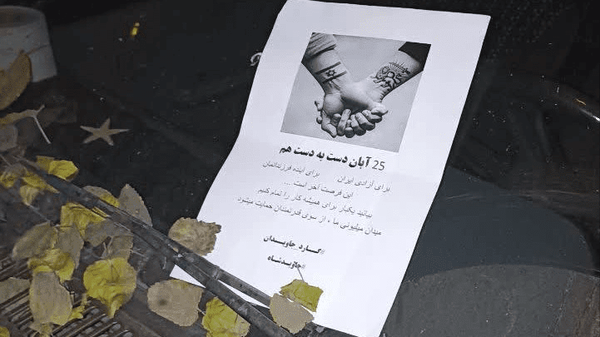 25 آبان دست به دست هم
برای آزادی ایران برای آینده فرزندانمان
این فرصت آخر است ...
بیایید یکبار برای همیشه کار را تمام کنیم
میدان میلیونی ما ، از سوی قدرتمندان حمایت میشود
#گارد_جاویدان
#جاویدشاه